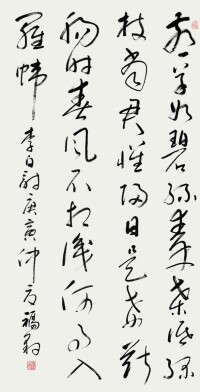 燕草如碧絲秦桑低綠
枝當君懷歸日是妾斷
腸時春風不相識何事入
羅幃 李白詩庚寅仲夏福